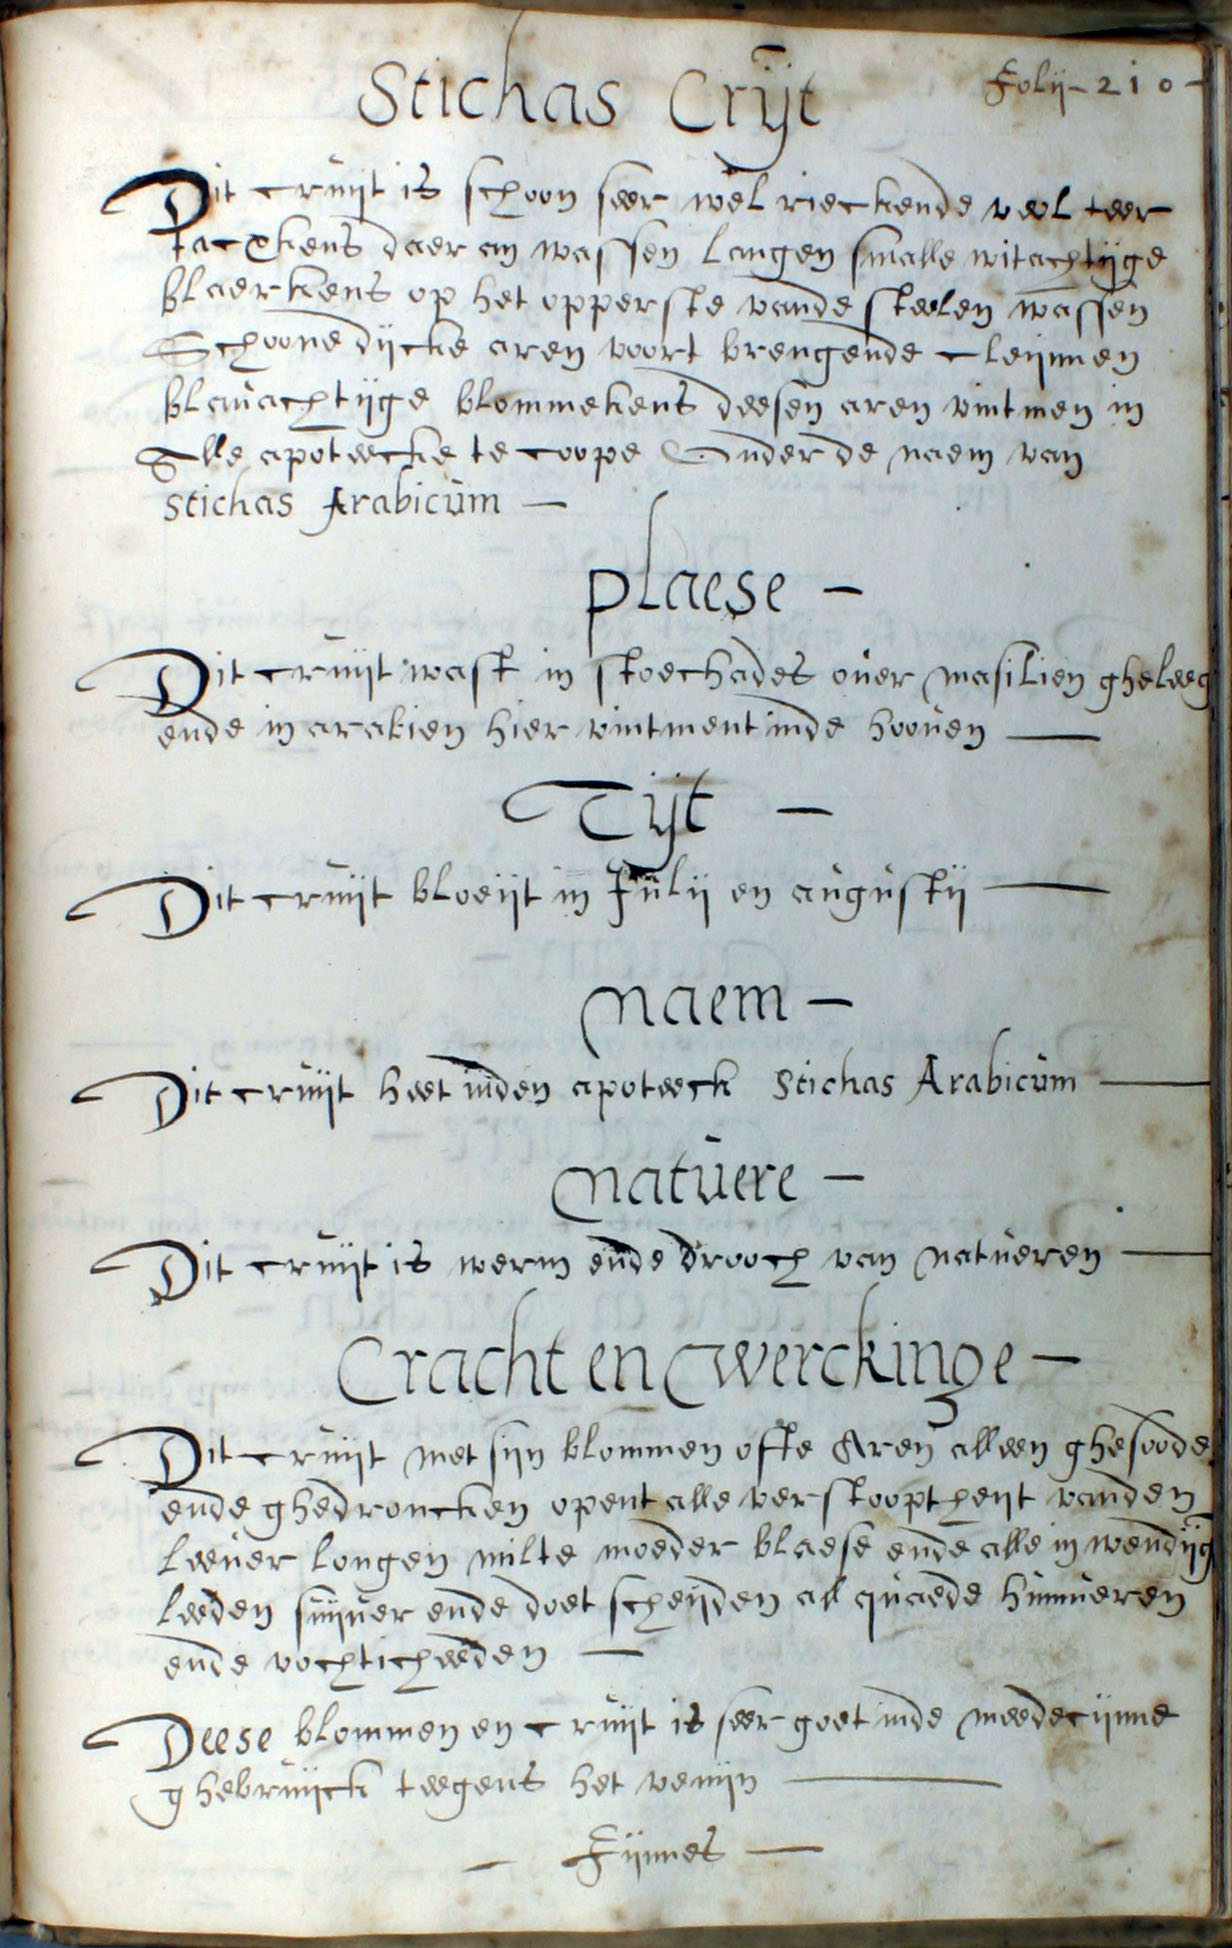 Folij - 210 -
Stichas Crijt
Dit cruijt is schoon seer wel rieckende veel teer
tacxkens daer an wassen langen smalle witachtijge
blaerkens op het opperste vande steelen wassen
Schoone dijcke aren voort brengende cleijnnen
blauachtijge blommekens deesen aren vintmen in
Alle apoteecke te coope Onder de naem van
Stichas Arabicum —
plaese —
Dit cruijt wast in stoechades over masilien gheleeg
ende in arabien hier vintment inde hooven —
Tijt —
Dit cruijt bloeijt in Julij en augustij —
Naem —
Dit cruijt heet inden apoteeck Stichas Arabicum —
Natuere —
Dit cruijt is werm ende drooch van natueren —
Cracht en werckinge —
Dit cruijt met sijn blommen ofte Aren alleen ghesoode
ende ghedroncken opent alle verstooptheijt vanden
leever longen milte moeder blaese ende alle in wendijg
leeden suijver ende doet scheijden all quaede humueren
ende vochticheeden —
Deese blommen en cruijt is seer goet inde meedecijnne
ghebruijck teegens het venijn —
— Fijnnes —